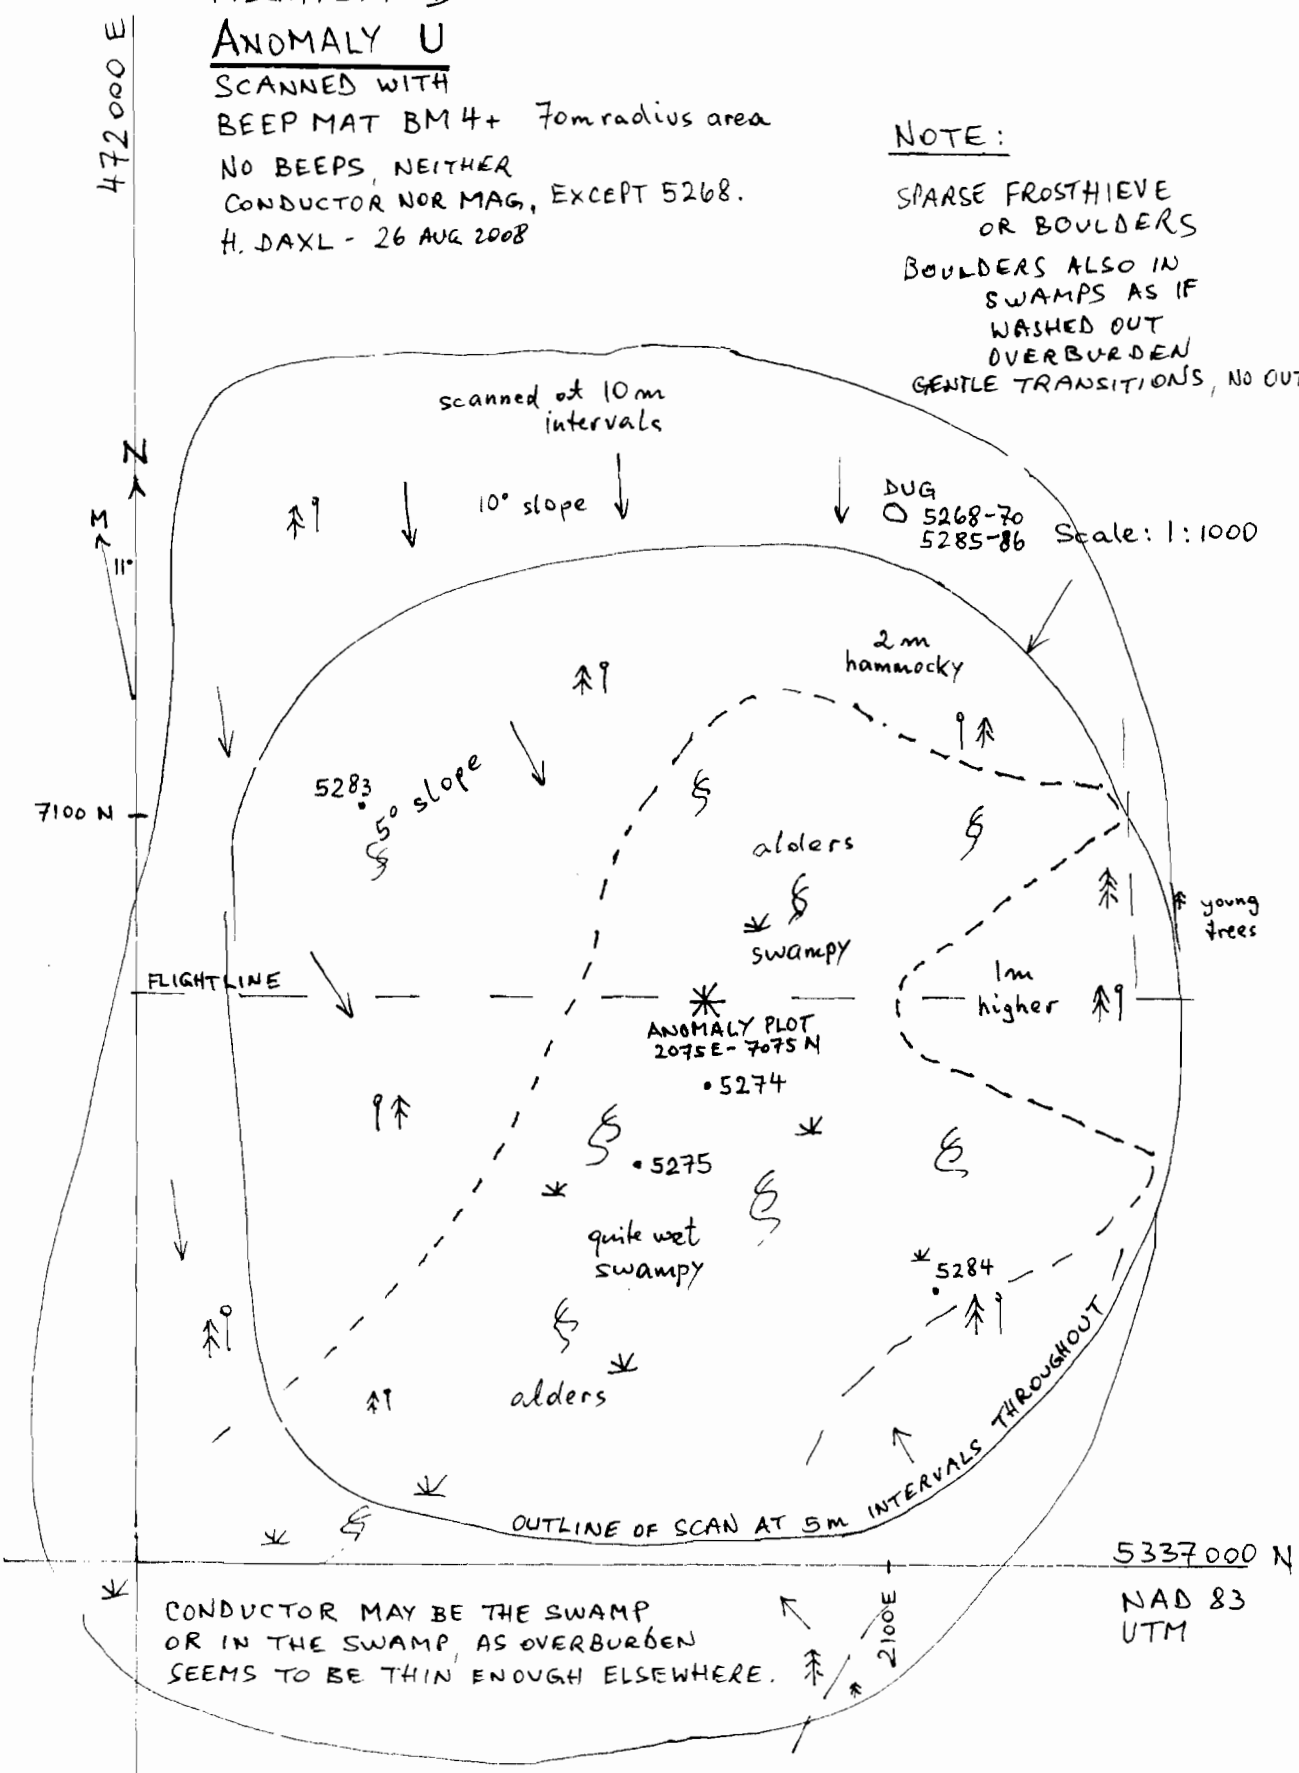 ANOMALY U
SCANNED WITH
BEEP MAT BM4+ 70m radius area
NO BEEPS, NEITHER
CONDUCTOR NOR MAG, EXCEPT 5268.
H. DAXL - 26 AUG 2008
472000 E
NOTE:
SPARSE FROSTHIEVE
OR BOULDERS
BOULDERS ALSO IN
SWAMPS AS IF
WASHED OUT
OVERBURDEN
GENTLE TRANSITIONS, NO OUT
scanned at 10 m
intervals
N
M
11°
10° slope
DUG
5268-70
5285-86
Scale: 1:1000
2 m
hammocky
5283
5° slope
7100 N
alders
swampy
young
trees
FLIGHTLINE
1m
higher
ANOMALY PLOT
2075E- 7075N
5274
5275
quite wet
swampy
5284
alders
OUTLINE OF SCAN AT 5m INTERVALS THROUGHOUT
5337000 N
NAD 83
UTM
2100E
CONDUCTOR MAY BE THE SWAMP
OR IN THE SWAMP, AS OVERBURDEN
SEEMS TO BE THIN ENOUGH ELSEWHERE.